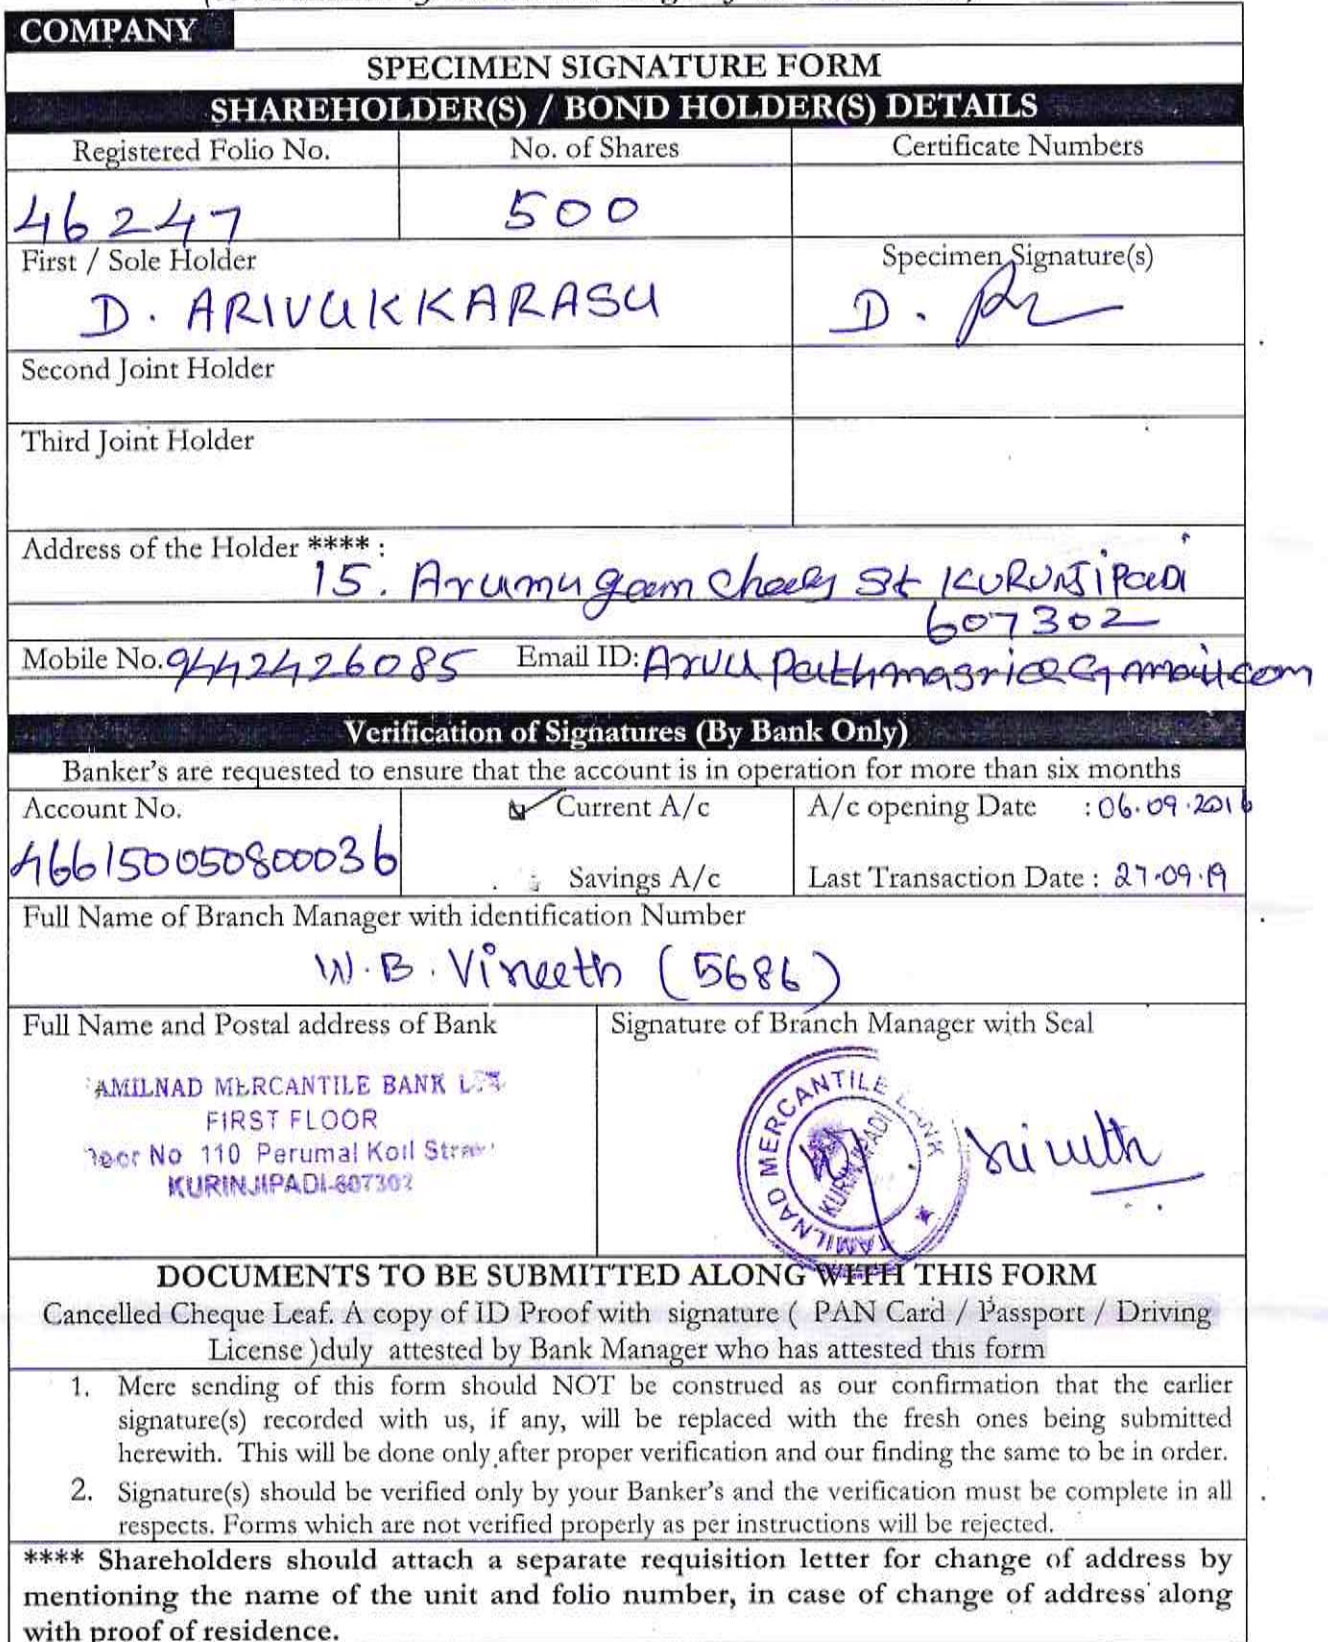 COMPANY
SPECIMEN SIGNATURE FORM
SHAREHOLDER(S) / BOND HOLDER(S) DETAILS
Registered Folio No. No. of Shares Certificate Numbers
46247 500
First / Sole Holder Specimen Signature(s)
D. ARIVUKKARASU D.
Second Joint Holder
Third Joint Holder
Address of the Holder **** :
15. Arumugam St KURUNJIPADI
607302
Mobile No. 9442426085 Email ID:
Verification of Signatures (By Bank Only)
Banker's are requested to ensure that the account is in operation for more than six months
Account No. Current A/c A/c opening Date : 06.09.2016
466150050800036
Savings A/c Last Transaction Date : 27.09.19
Full Name of Branch Manager with identification Number
W.B. Vineeth (5686)
Full Name and Postal address of Bank Signature of Branch Manager with Seal
AMILNAD MERCANTILE BANK
FIRST FLOOR
No 110 Perumal Koil
KURINJIPADI-607302
TAMILNAD MERCANTILE BANK
KURINJIPADI
Vineeth
DOCUMENTS TO BE SUBMITTED ALONG WITH THIS FORM
Cancelled Cheque Leaf. A copy of ID Proof with signature ( PAN Card / Passport / Driving
License )duly attested by Bank Manager who has attested this form
1. Mere sending of this form should NOT be construed as our confirmation that the earlier
signature(s) recorded with us, if any, will be replaced with the fresh ones being submitted
herewith. This will be done only after proper verification and our finding the same to be in order.
2. Signature(s) should be verified only by your Banker's and the verification must be complete in all
respects. Forms which are not verified properly as per instructions will be rejected.
**** Shareholders should attach a separate requisition letter for change of address by
mentioning the name of the unit and folio number, in case of change of address along
with proof of residence.